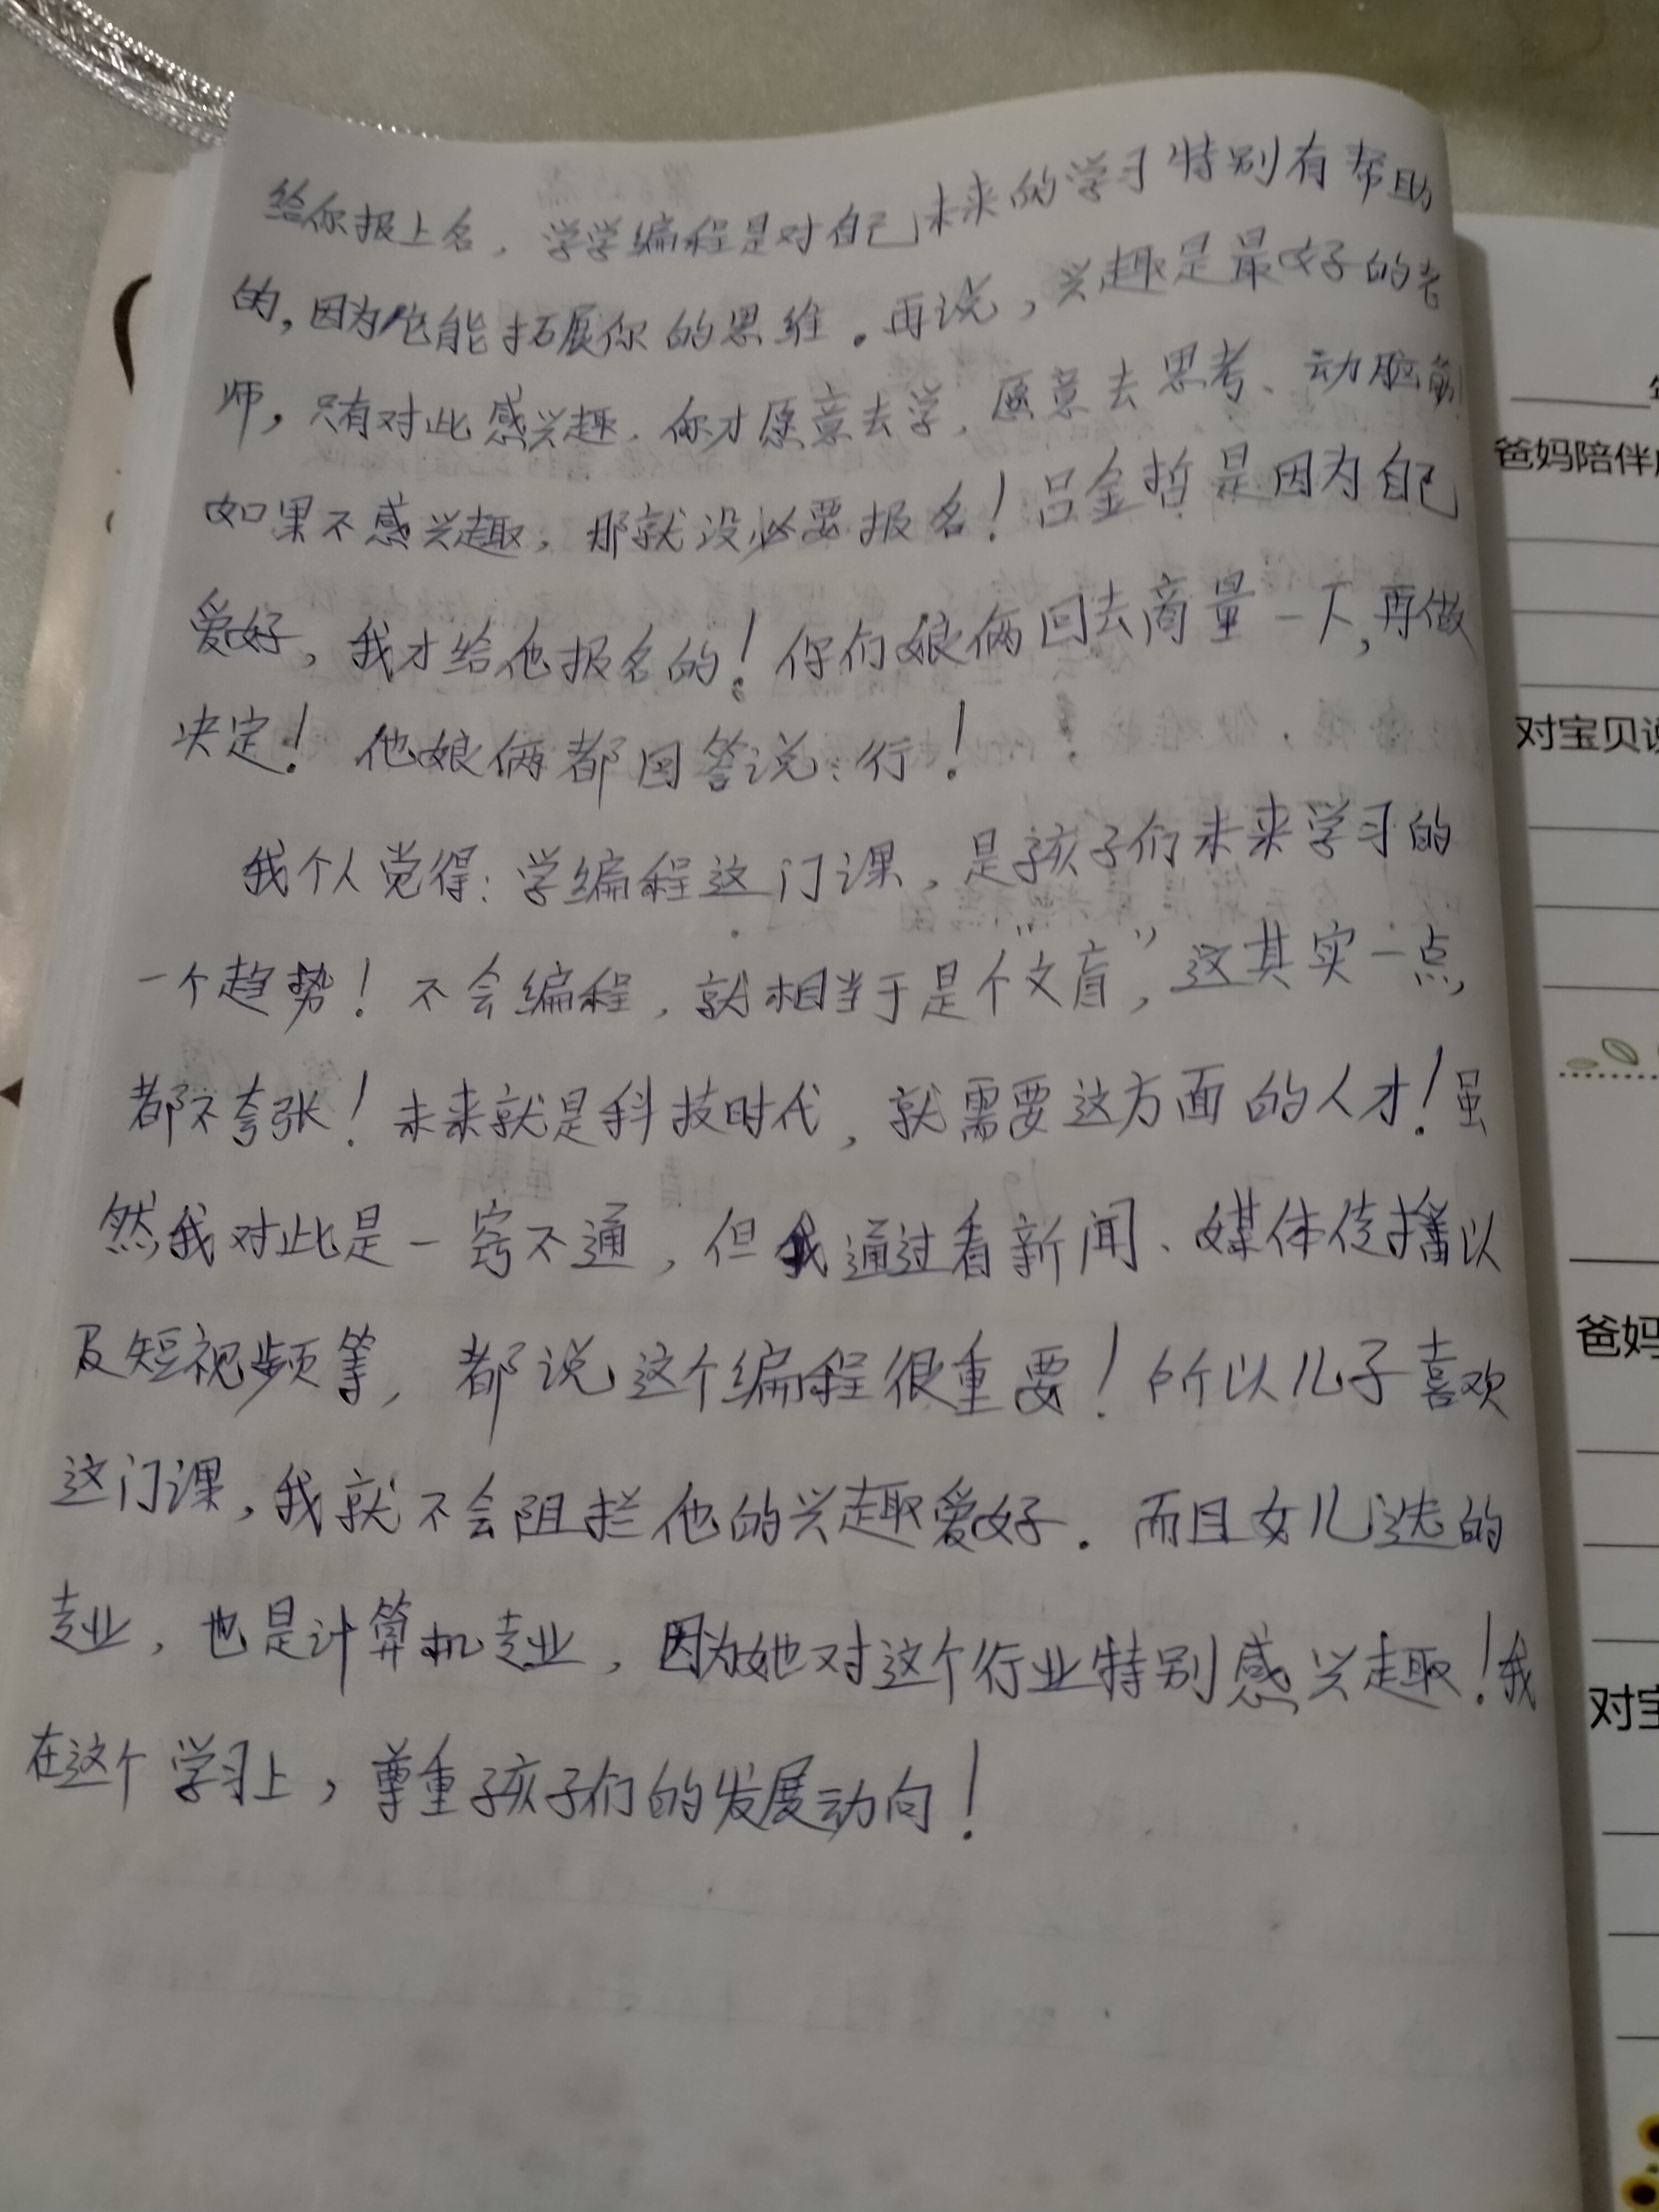 给你报上名，学学编程是对自己未来的学习特别有帮助
的，因为它能拓展你的思维。再说，兴趣是最好的老
师，只有对此感兴趣，你才愿意去学，愿意去思考、动脑筋
如果不感兴趣，那就没必要报名！吕金哲是因为自己
爱好，我才给他报名的！你们娘俩回去商量一下，再做
决定！他娘俩都回答说：行！
我个人觉得：学编程这门课，是孩子们未来学习的
一个趋势！不会编程，就相当于是个“文盲”，这其实一点
都不夸张！未来就是科技时代，就需要这方面的人才！虽
然我对此是一窍不通，但我通过看新闻、媒体传播以
及短视频等，都说这个编程很重要！所以儿子喜欢
这门课，我就不会阻拦他的兴趣爱好。而且女儿选的
专业，也是计算机专业，因为她对这个行业特别感兴趣！我
在这个学习上，尊重孩子们的发展动向！
爸妈陪伴
对宝贝说
爸妈
对宝